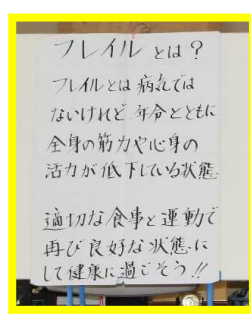 フレイルとは？
フレイルとは病気では
ないけれど、年令とともに
全身の筋力や心身の
活力が低下している状態.
適切な食事と運動で
再び良好な状態に
して健康に過ごそう!!